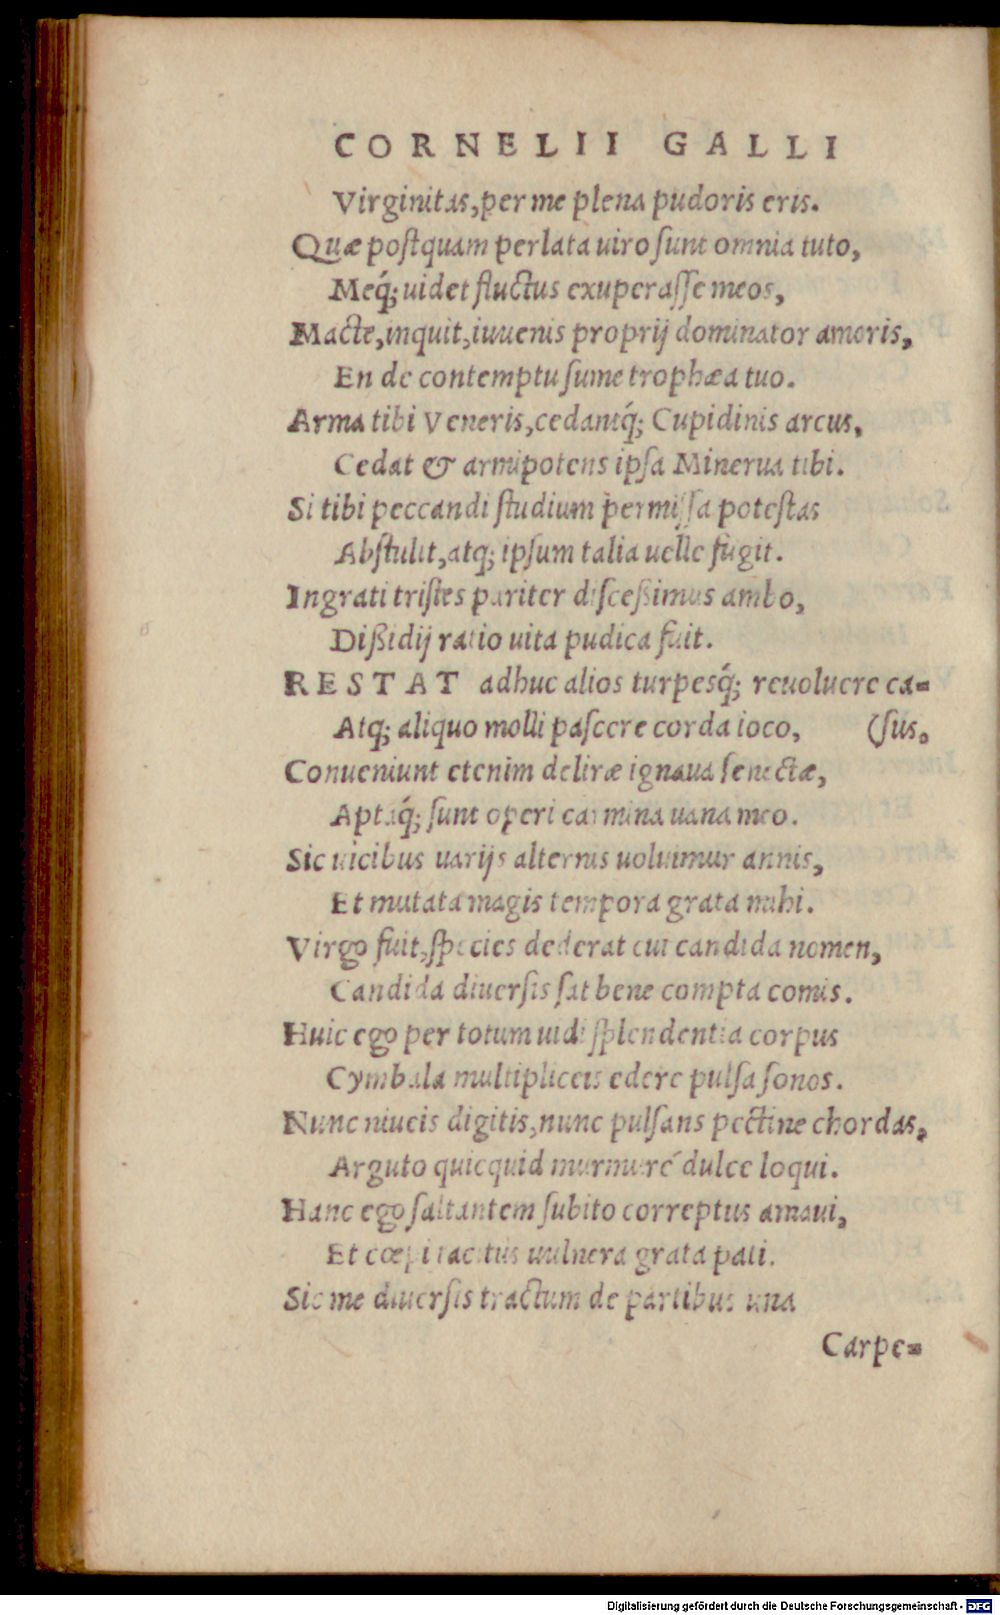 CORNELII GALLI
Virginitas, per me plena pudoris eris.
Quæ postquam perlata uiro sunt omnia tuto,
Meq́; uidet fluctus exuperasse meos,
Macte, inquit, iuuenis proprij dominator amoris,
En de contemptu sume trophæa tuo.
Arma tibi Veneris, cedantq́; Cupidinis arcus,
Cedat & armipotens ipsa Minerua tibi.
Si tibi peccandi studium permissa potestas
Abstulit, atq; ipsum talia uelle fugit.
Ingrati tristes pariter disceßimus ambo,
Dißidij ratio uita pudica fuit.
RESTAT adhuc alios turpesq́; reuoluere ca-
Atq; aliquo molli pascere corda ioco, (sus.
Conueniunt etenim deliræ ignaua senectæ,
Aptaq́; sunt operi carmina uana meo.
Sic uicibus uarijs alternis uoluimur annis,
Et mutata magis tempora grata mihi.
Virgo fuit, species dederat cui candida nomen,
Candida diuersis sat bene compta comis.
Huic ego per totum uidi splendentia corpus
Cymbala multipliceis edere pulsa sonos.
Nunc niueis digitis, nunc pulsans pectine chordas,
Arguto quicquid murmure dulce loqui.
Hanc ego saltantem subito correptus amaui,
Et cœpi tacitus uulnera grata pati.
Sic me diuersis tractum de partibus una
Carpe-
Digitalisierung gefördert durch die Deutsche Forschungsgemeinschaft - DFG